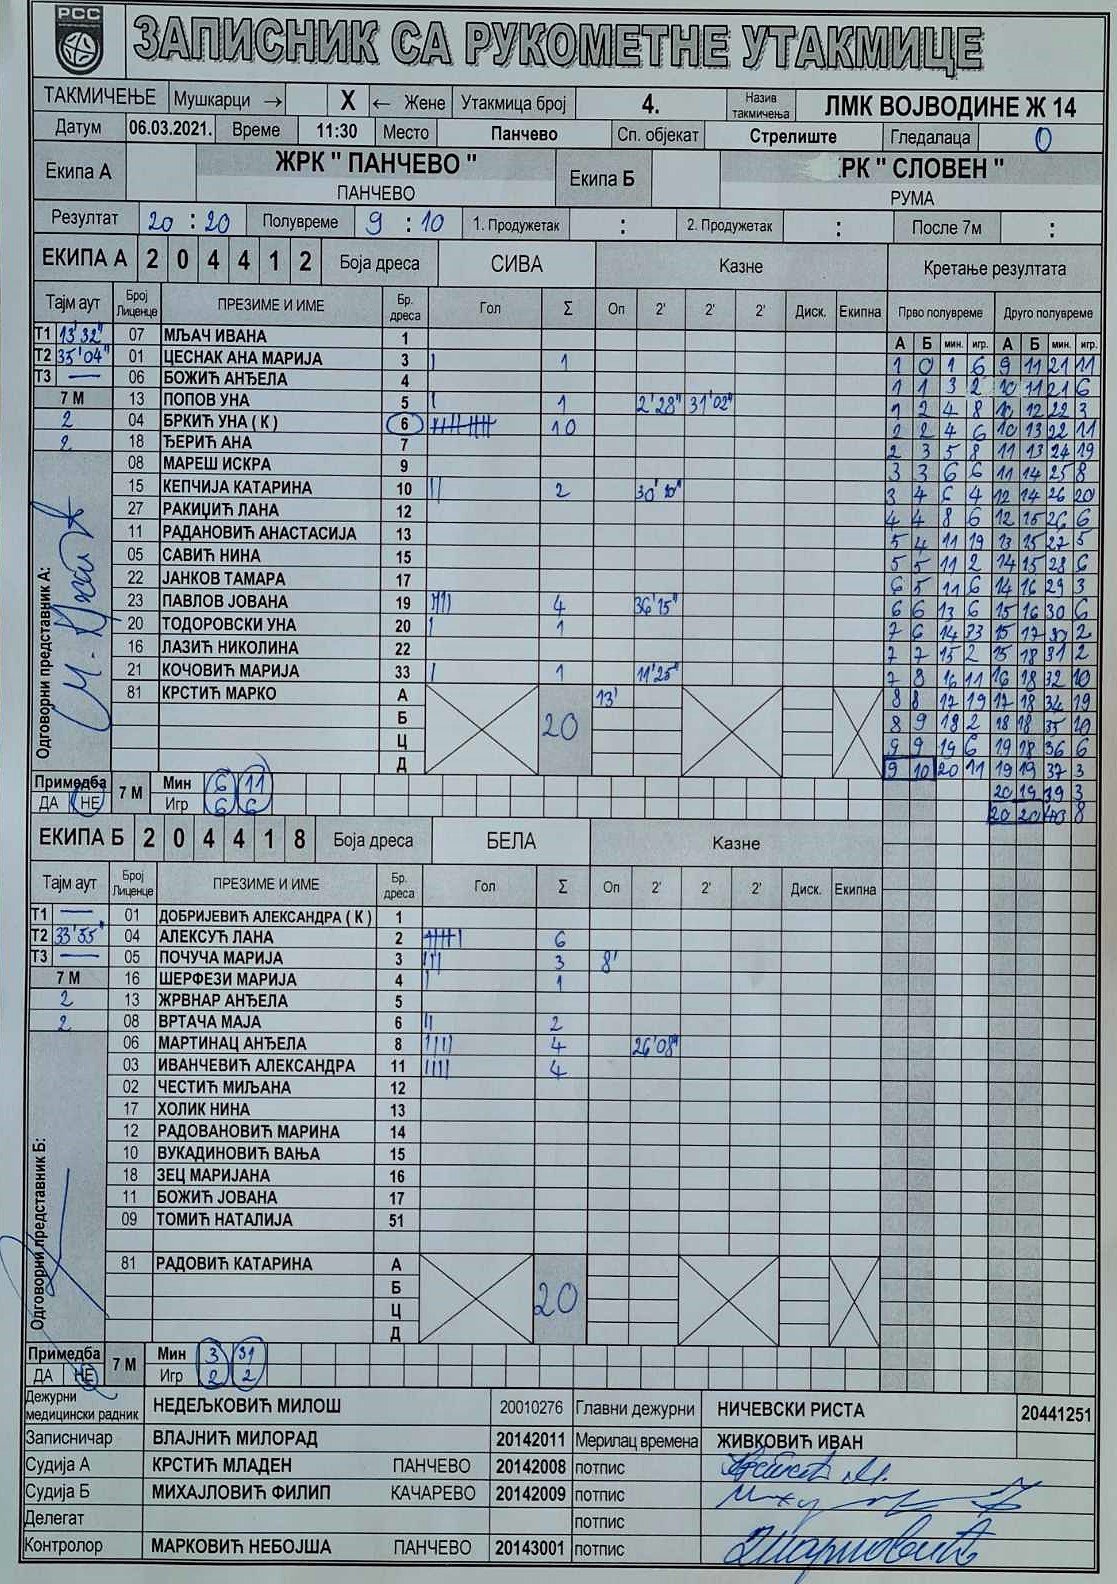 РСС
ЗАПИСНИК СА РУКОМЕТНЕ УТАКМИЦЕ
ТАКМИЧЕЊЕ Мушкарци → X ← Жене Утакмица број 4. Назив такмичења ЛМК ВОЈВОДИНЕ Ж 14
Датум 06.03.2021. Време 11:30 Место Панчево Сп. објекат Стрелиште Гледалаца 0
Екипа А ЖРК " ПАНЧЕВО " Екипа Б РК " СЛОВЕН "
ПАНЧЕВО РУМА
Резултат 20 : 20 Полувреме 9 : 10 1. Продужетак : 2. Продужетак : После 7м :
ЕКИПА А 2 0 4 4 1 2 Боја дреса СИВА Казне Кретање резултата
Тајм аут Број Лиценце ПРЕЗИМЕ И ИМЕ Бр. дреса Гол Σ Оп 2' 2' 2' Диск. Екипна Прво полувреме Друго полувреме
А Б мин. игр. А Б мин. игр.
Т1 13'32" 07 МЉАЧ ИВАНА 1
Т2 35'04" 01 ЦЕСНАК АНА МАРИЈА 3 I 1 1 0 1 6 9 11 21 11
Т3 — 06 БОЖИЋ АНЂЕЛА 4 1 1 3 2 10 11 21 6
7 М 13 ПОПОВ УНА 5 I 1 2'28" 31'02" 1 2 4 8 10 12 22 3
2 04 БРКИЋ УНА ( К ) 6 10 2 2 4 6 10 13 22 11
2 18 ЂЕРИЋ АНА 7 2 3 5 8 11 13 24 19
08 МАРЕШ ИСКРА 9 3 3 6 6 11 14 25 8
15 КЕПЧИЈА КАТАРИНА 10 II 2 30'10" 3 4 6 4 12 14 26 20
27 РАКИЏИЋ ЛАНА 12 4 4 8 6 12 15 26 6
11 РАДАНОВИЋ АНАСТАСИЈА 13 5 4 11 19 13 15 27 5
05 САВИЋ НИНА 15 5 5 11 2 14 15 28 6
22 ЈАНКОВ ТАМАРА 17 6 5 11 6 14 16 29 3
23 ПАВЛОВ ЈОВАНА 19 IIII 4 36'15" 6 6 13 6 15 16 30 6
20 ТОДОРОВСКИ УНА 20 I 1 7 6 14 33 15 17 30 2
16 ЛАЗИЋ НИКОЛИНА 22 7 7 15 2 15 18 31 2
21 КОЧОВИЋ МАРИЈА 33 I 1 11'25" 7 8 16 11 16 18 32 10
81 КРСТИЋ МАРКО А 13' 8 8 17 19 17 18 34 19
Б 20 8 9 18 2 18 18 35 10
Ц 9 9 19 6 19 18 36 6
Д 9 10 20 11 19 19 37 3
Одговорни представник А:
Примедба 7 М Мин 6 11 20 19 39 3
ДА НЕ Игр 6 6 20 20 40 8
ЕКИПА Б 2 0 4 4 1 8 Боја дреса БЕЛА Казне
Тајм аут Број Лиценце ПРЕЗИМЕ И ИМЕ Бр. дреса Гол Σ Оп 2' 2' 2' Диск. Екипна
Т1 — 01 ДОБРИЈЕВИЋ АЛЕКСАНДРА ( К ) 1
Т2 33'55" 04 АЛЕКСУЋ ЛАНА 2 6
Т3 — 05 ПОЧУЧА МАРИЈА 3 III 3 8'
7 М 16 ШЕРФЕЗИ МАРИЈА 4 I 1
2 13 ЖРВНАР АНЂЕЛА 5
2 08 ВРТАЧА МАЈА 6 II 2
06 МАРТИНАЦ АНЂЕЛА 8 IIII 4 26'08"
03 ИВАНЧЕВИЋ АЛЕКСАНДРА 11 IIII 4
02 ЧЕСТИЋ МИЉАНА 12
17 ХОЛИК НИНА 13
12 РАДОВАНОВИЋ МАРИНА 14
10 ВУКАДИНОВИЋ ВАЊА 15
18 ЗЕЦ МАРИЈАНА 16
11 БОЖИЋ ЈОВАНА 17
09 ТОМИЋ НАТАЛИЈА 51
81 РАДОВИЋ КАТАРИНА А
Б 20
Ц
Д
Одговорни представник Б:
Примедба 7 М Мин 3 31
ДА НЕ Игр 2 2
Дежурни медицински радник НЕДЕЉКОВИЋ МИЛОШ 20010276 Главни дежурни НИЧЕВСКИ РИСТА 20441251
Записничар ВЛАЈНИЋ МИЛОРАД 20142011 Мерилац времена ЖИВКОВИЋ ИВАН
Судија А КРСТИЋ МЛАДЕН ПАНЧЕВО 20142008 потпис
Судија Б МИХАЈЛОВИЋ ФИЛИП КАЧАРЕВО 20142009 потпис
Делегат потпис
Контролор МАРКОВИЋ НЕБОЈША ПАНЧЕВО 20143001 потпис